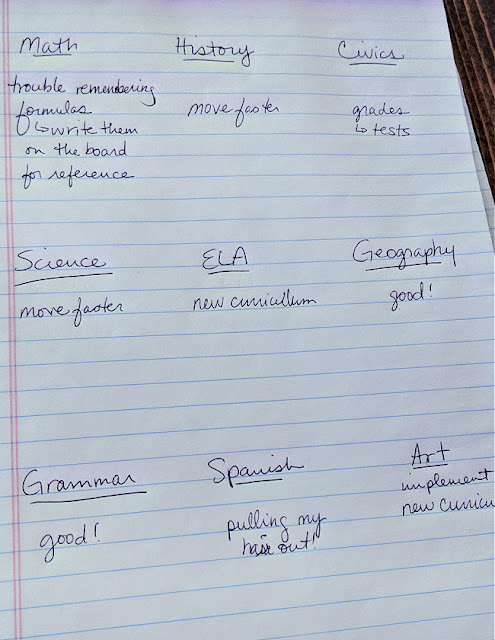 Math
trouble remembering
formulas
↳ write them
on the board
for reference
History
move faster
Civics
grades
↳ tests
Science
move faster
ELA
new curricullum
Geography
good!
Grammar
good!
Spanish
pulling my
hair out!
Art
implement
new curricu